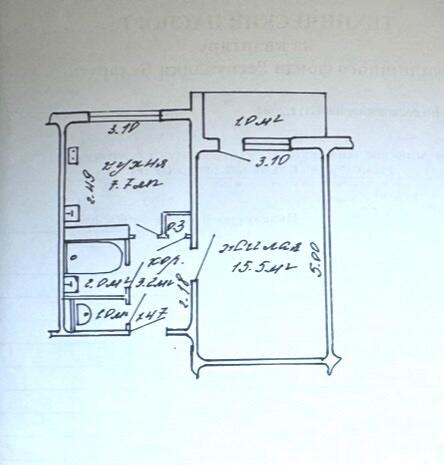 ТЕХНИЧЕСКИЙ ПАСПОРТ
на квартиру
2.0 м²
3.10
3.10
кухня
7.7 м²
2.49
0.3
жилая
15.5 м²
5.00
кор.
3.2 м²
2.0 м²
2.18
1.47